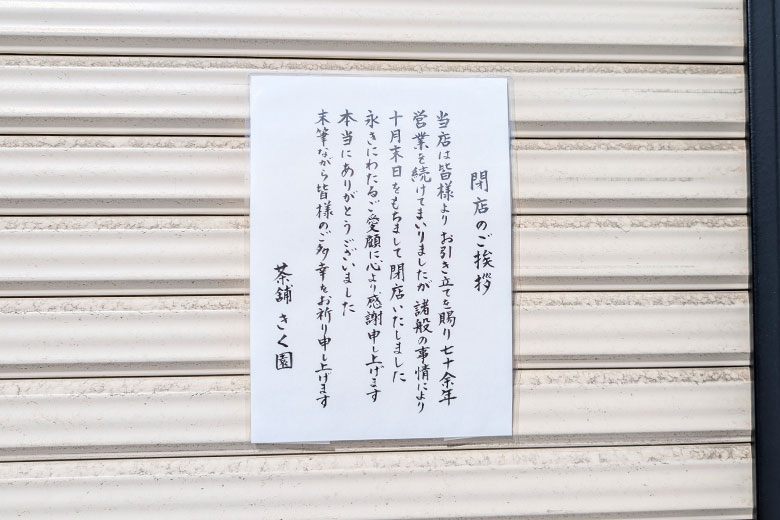 閉店のご挨拶
当店は皆様よりお引き立てを賜り七十余年
営業を続けてまいりましたが諸般の事情により
十月末日をもちまして閉店いたしました
永きにわたるご愛顧に心より感謝申し上げます
本当にありがとうございました
末筆ながら皆様のご多幸をお祈り申し上げます
茶舗きく園